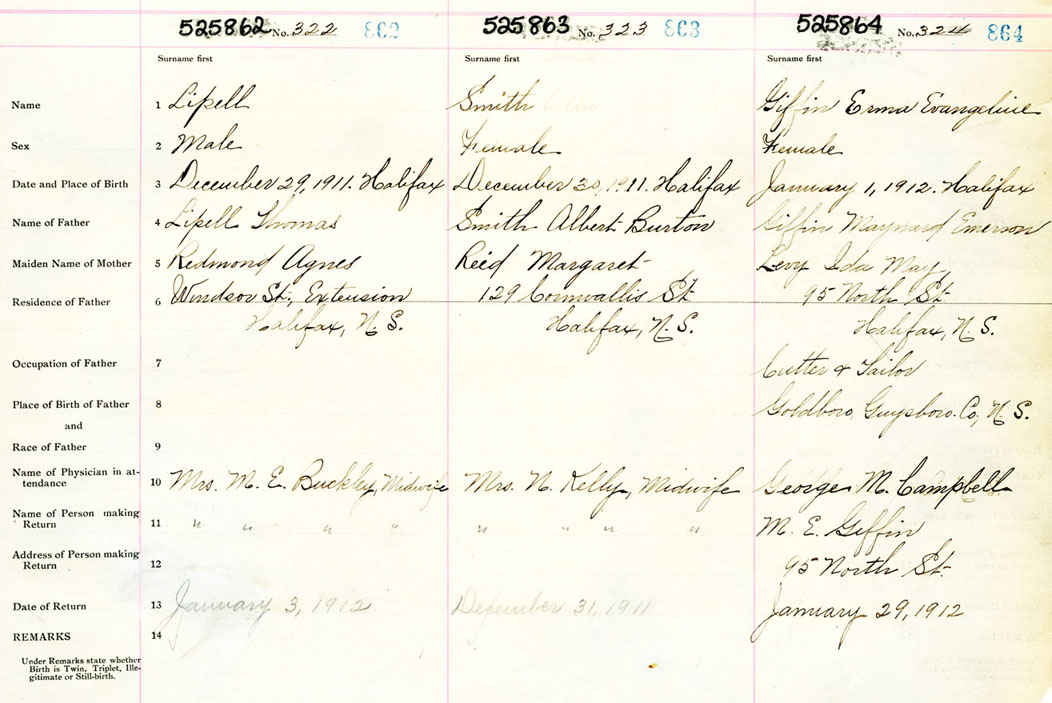 525862 No. 322 862 525863 No. 323 863 525864 No. 324 864
Surname first Surname first Surname first
Name 1 Lipell Smith Giffin Erma Evangeline
Sex 2 Male Female Female
Date and Place of Birth 3 December 29, 1911. Halifax December 30, 1911. Halifax January 1, 1912. Halifax
Name of Father 4 Lipell Thomas Smith Albert Burton Giffin Maynard Emerson
Maiden Name of Mother 5 Redmond Agnes Reid Margaret Levy Ida May,
Residence of Father 6 Windsor St., Extension 129 Cornwallis St. 95 North St.
Halifax, N.S. Halifax, N.S. Halifax, N.S.
Occupation of Father 7 Cutter & Tailor
Place of Birth of Father 8 Goldboro, Guysboro. Co, N.S.
and
Race of Father 9
Name of Physician in at-
tendance 10 Mrs. M. E. Buckley, Midwife Mrs. N. Kelly, Midwife George M. Campbell
Name of Person making
Return 11 " " " " " " " " M. E. Giffin
Address of Person making
Return 12 95 North St.
Date of Return 13 January 3, 1912 December 31, 1911 January 29, 1912
REMARKS 14
Under Remarks state whether
Birth is Twin, Triplet, Ille-
gitimate or Still-birth.